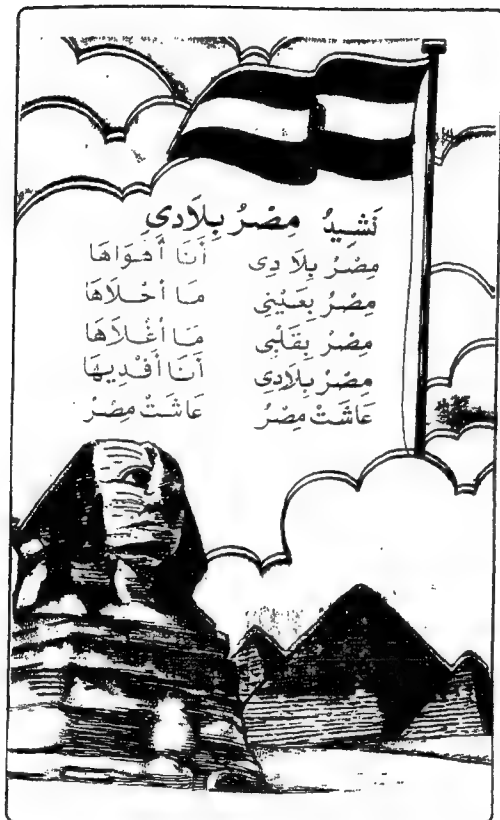 نَشِيدُ مِصْرُ بِلَادِى
مِصْرُ بِلَادِى أَنَا أَهْوَاهَا
مِصْرُ بِعَيْنِى مَا أحْلَاهَا
مِصْرُ بِقَلْبِى مَا أغْلَاهَا
مِصْرُ بِلَادِى أَنَا أَفْدِيهَا
عَاشَتْ مِصْرُ عَاشَتْ مِصْرُ